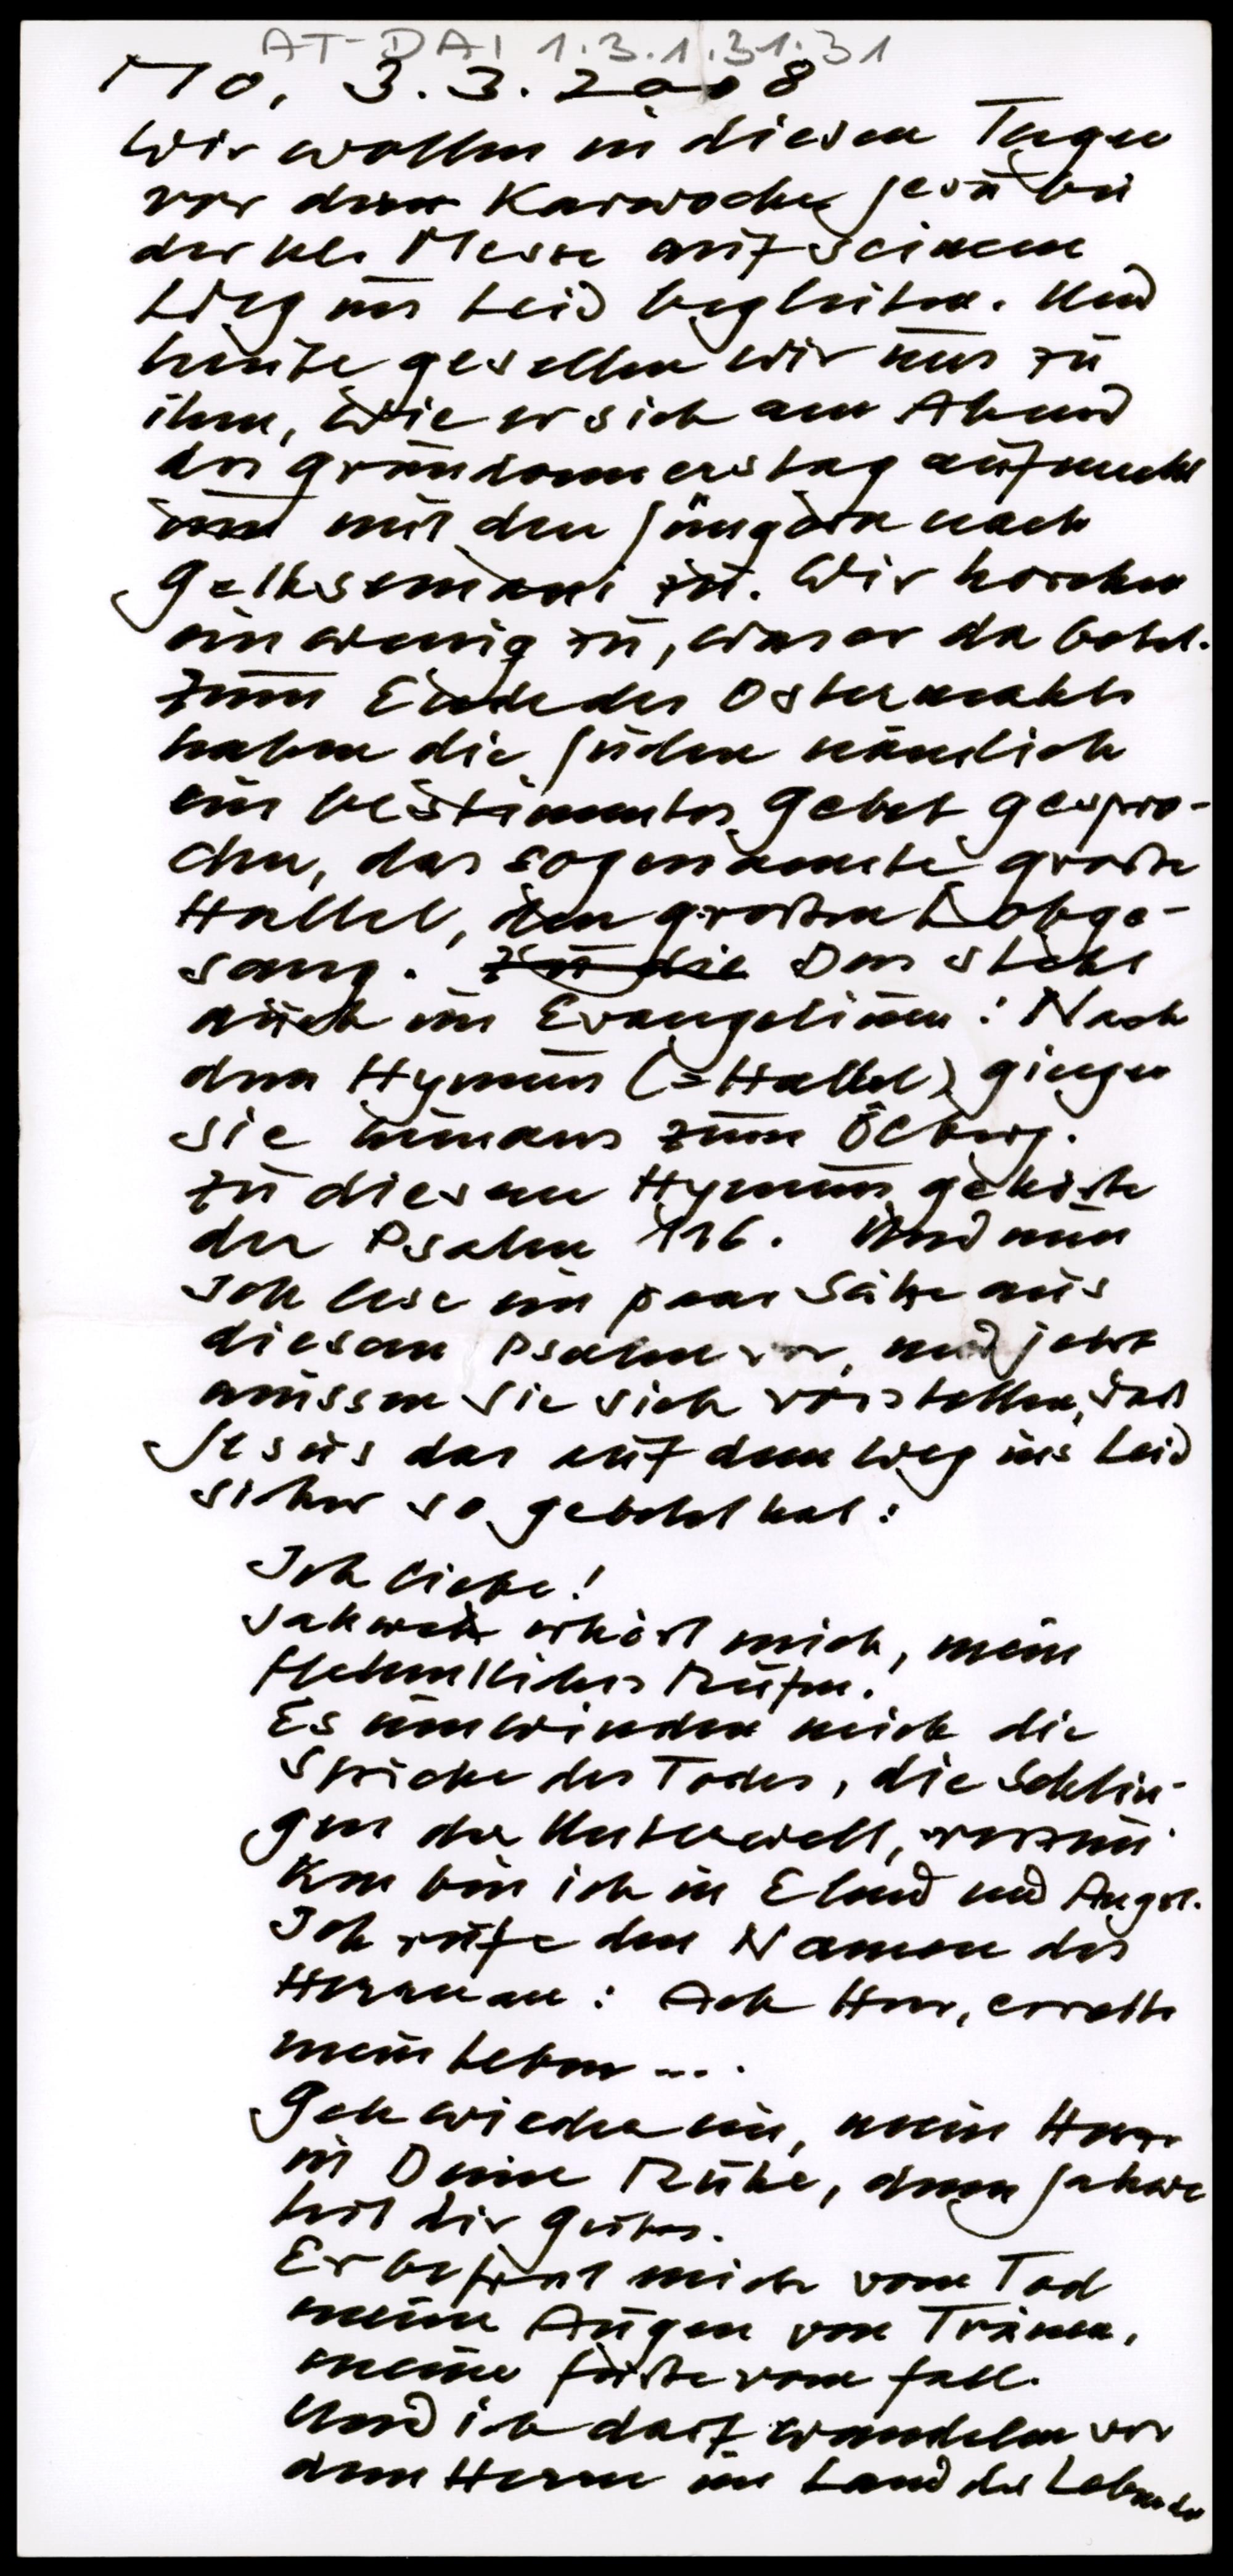 AT-DAI 1.3.1.31.31
Mo, 3.3.2008
Wir wollen in diesen Tagen
vor der Karwoche Jesu bei
der hl. Messe auf seinem
Weg ins Leid begleiten. Und
heute gesellen wir uns zu
ihm, wie er sich am Abend
des Gründonnerstag aufmacht
mit den Jüngern nach
Gethsemani zu. Wir horchen
ein wenig zu, was er da betet.
Zum Ende des Ostermahls
haben die Juden nämlich
ein bestimmtes Gebet gespro-
chen, das sogenannte große
Hallel, den großen Lobge-
sang. Zu die Das steht
auch im Evangelium: Nach
dem Hymnus (=Hallel) gingen
sie hinaus zum Ölberg.
Zu diesem Hymnus gehörte
der Psalm 116. Und nun
Ich lese ein paar Sätze aus
diesem Psalm vor, und jetzt
müssen Sie sich vorstellen, daß
Jesus das auf dem Weg ins Leid
sicher so gebetet hat:
Ich liebe!
Jahweh erhört mich, mein
flehentliches Rufen.
Es umwinden mich die
Stricke des Todes, die Schlin-
gen der Unterwelt, versun-
ken bin ich in Elend und Angst.
Ich rufe den Namen des
Herrn an: Ach Herr, errette
mein Leben ...
Geh wieder ein, mein Herz
in Deine Ruhe, denn Jahwe
tut dir Gutes.
Er befreit mich vom Tod
meine Augen von Tränen,
meine Füße vom Fall.
Und ich darf wandeln vor
dem Herrn im Land der Lebenden